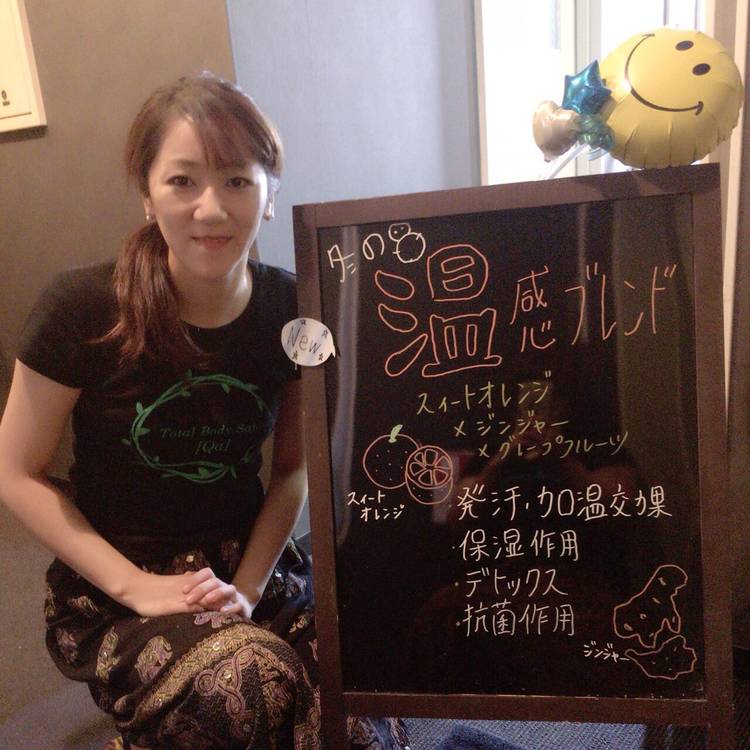 New
Total Body Salon
[Qu]
冬の
温感ブレンド
スィートオレンジ
×ジンジャー
×グレープフルーツ
スィート
オレンジ
・発汗・加温効果
・保湿作用
・デトックス
・抗菌作用
ジンジャー